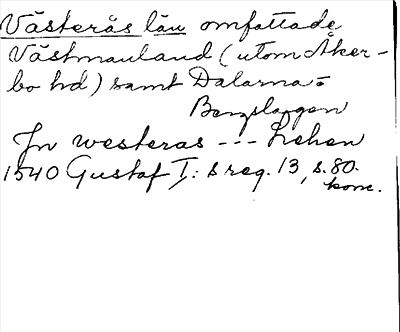 Västerås län omfattade
Västmanland (utom Åker-
bo hd) samt Dalarna =
Bergslagen
In westeras --- Lehen
1540 Gustaf I: s reg. 13, s. 80.
konc.